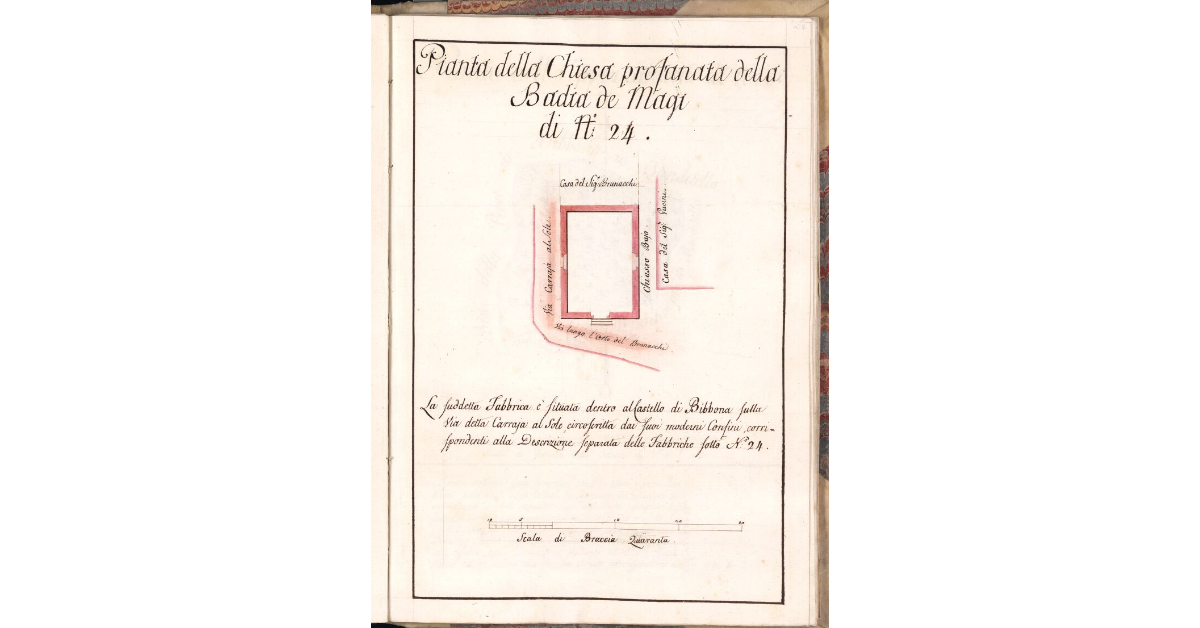 Pianta della Chiesa profanata della
Badia de Magi
di N.° 24.
Casa del Sig.r Brunacchi
Via Carraja al Sole
Chiostro Bujo.
Casa del Sig.r
Via lungo l'Orto del Brunacchi
La suddetta Fabbrica è situata dentro al Castello di Bibbona sulla
Via detta Carraja al Sole circoscritta dai suoi moderni Confini, corri-
spondenti alla Descrizione separata delle Fabbriche sotto N.° 24.
Scala di Braccia Quaranta